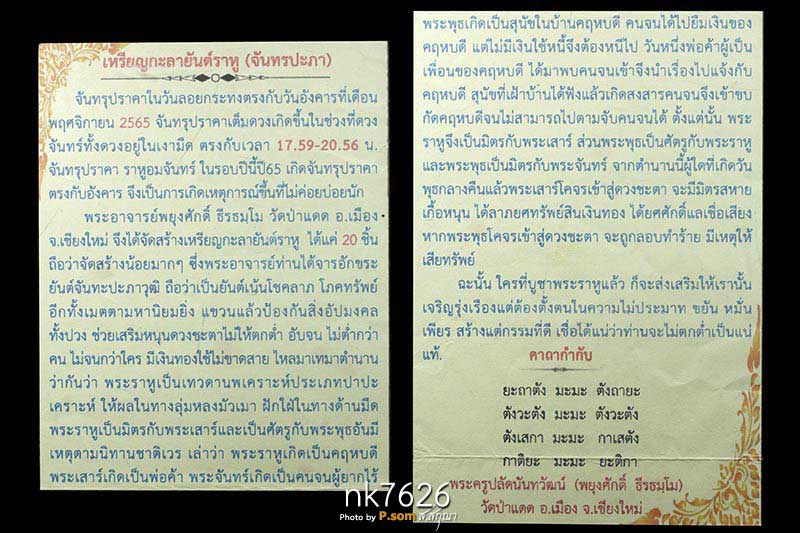 เหรียญกะลายันต์ราหู (จันทรปะภา)
จันทรุปราคาในวันลอยกระทงตรงกับวันอังคารที่เดือน
พฤศจิกายน 2565 จันทรุปราคาเต็มดวงเกิดขึ้นในช่วงที่ดวง
จันทร์ทั้งดวงอยู่ในเงามืด ตรงกับเวลา 17.59-20.56 น.
จันทรุปราคา ราหูอมจันทร์ ในรอบปีนี้ปี65 เกิดจันทรุปราคา
ตรงกับอังคาร จึงเป็นการเกิดเหตุการณ์ขึ้นที่ไม่ค่อยบ่อยนัก
พระอาจารย์พยุงศักดิ์ ธีรธมฺโม วัดป่าแดด อ.เมือง
จ.เชียงใหม่ จึงได้จัดสร้างเหรียญกะลายันต์ราหู ได้แค่ 20 ชิ้น
ถือว่าจัดสร้างน้อยมากๆ ซึ่งพระอาจารย์ท่านได้จารอักขระ
ยันต์จันทะปะภาวุฒิ ถือว่าเป็นยันต์เน้นโชคลาภ โภคทรัพย์
อีกทั้งเมตตามหานิยมยิ่ง แขวนแล้วป้องกันสิ่งอัปมงคล
ทั้งปวง ช่วยเสริมหนุนดวงชะตาไม่ให้ตกต่ำ อับจน ไม่ต่ำกว่า
คน ไม่จนกว่าใคร มีเงินทองใช้ไม่ขาดสาย ไหลมาเทมาตำนาน
ว่ากันว่า พระราหูเป็นเทวดานพเคราะห์ประเภทปาปะ
เคราะห์ ให้ผลในทางลุ่มหลงมัวเมา ฝักใฝ่ในทางด้านมืด
พระราหูเป็นมิตรกับพระเสาร์และเป็นศัตรูกับพระพุธอันมี
เหตุตามนิทานชาติเวร เล่าว่า พระราหูเกิดเป็นคฤหบดี
พระเสาร์เกิดเป็นพ่อค้า พระจันทร์เกิดเป็นคนจนผู้ยากไร้
พระพุธเกิดเป็นสุนัขในบ้านคฤหบดี คนจนได้ไปยืมเงินของ
คฤหบดี แต่ไม่มีเงินใช้หนี้จึงต้องหนีไป วันหนึ่งพ่อค้าผู้เป็น
เพื่อนของคฤหบดี ได้มาพบคนจนเข้าจึงนำเรื่องไปแจ้งกับ
คฤหบดี สุนัขที่เฝ้าบ้านได้ฟังแล้วเกิดสงสารคนจนจึงเข้าขบ
กัดคฤหบดีจนไม่สามารถไปตามจับคนจนได้ ตั้งแต่นั้น พระ
ราหูจึงเป็นมิตรกับพระเสาร์ ส่วนพระพุธเป็นศัตรูกับพระราหู
และพระพุธเป็นมิตรกับพระจันทร์ จากตำนานนี้ผู้ใดที่เกิดวัน
พุธกลางคืนแล้วพระเสาร์โคจรเข้าสู่ดวงชะตา จะมีมิตรสหาย
เกื้อหนุน ได้ลาภยศทรัพย์สินเงินทอง ได้ยศศักดิ์แลเชื่อเสียง
หากพระพุธโคจรเข้าสู่ดวงชะตา จะถูกลอบทำร้าย มีเหตุให้
เสียทรัพย์
ฉะนั้น ใครที่บูชาพระราหูแล้ว ก็จะส่งเสริมให้เรานั้น
เจริญรุ่งเรืองแต่ต้องตั้งตนในความไม่ประมาท ขยัน หมั่น
เพียร สร้างแต่กรรมที่ดี เชื่อได้แน่ว่าท่านจะไม่ตกต่ำเป็นแน่
แท้.
คาถากำกับ
ยะถาตัง มะมะ ตังถายะ
ตังวะตัง มะมะ ตังวะตัง
ตังเสกา มะมะ กาเสตัง
กาติยะ มะมะ ยะติกา
พระครูปลัดนันทวัฒน์ (พยุงศักดิ์ ธีรธมฺโม)
วัดป่าแดด อ.เมือง จ.เชียงใหม่
nk7626
Photo by P.som